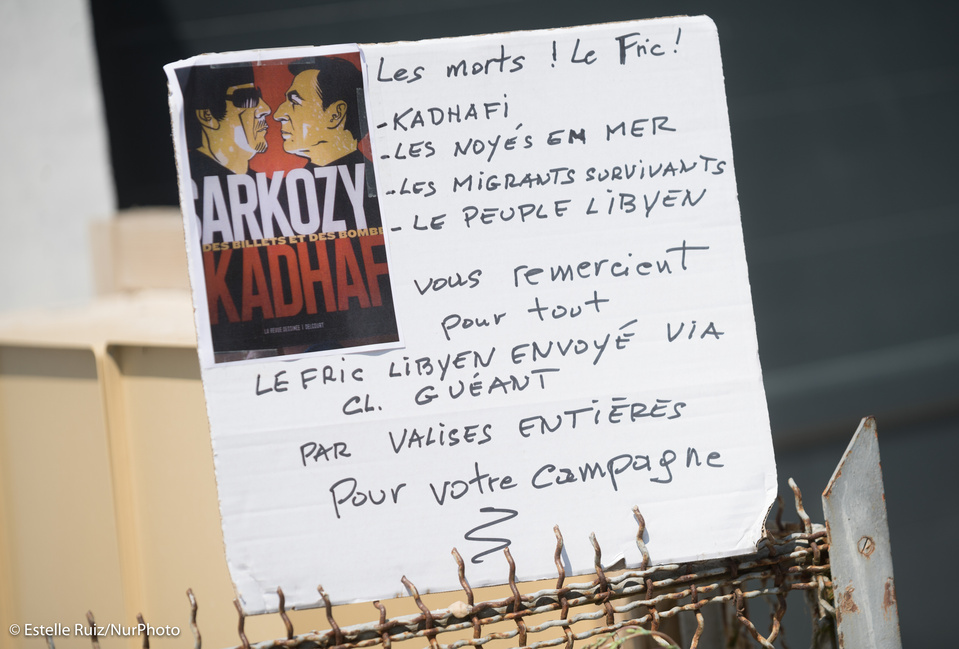 Les morts ! Le Fric !
- KADHAFI
- LES NOYÉS EN MER
- LES MIGRANTS SURVIVANTS
- LE PEUPLE LIBYEN
vous remercient
pour tout
LE FRIC LIBYEN ENVOYÉ VIA
CL. GUÉANT
PAR VALISES ENTIÈRES
Pour votre campagne
SARKOZY
DES BILLETS ET DES BOMBE
KADHAF
LA REVUE DESSINÉE | DELCOURT
© Estelle Ruiz/NurPhoto